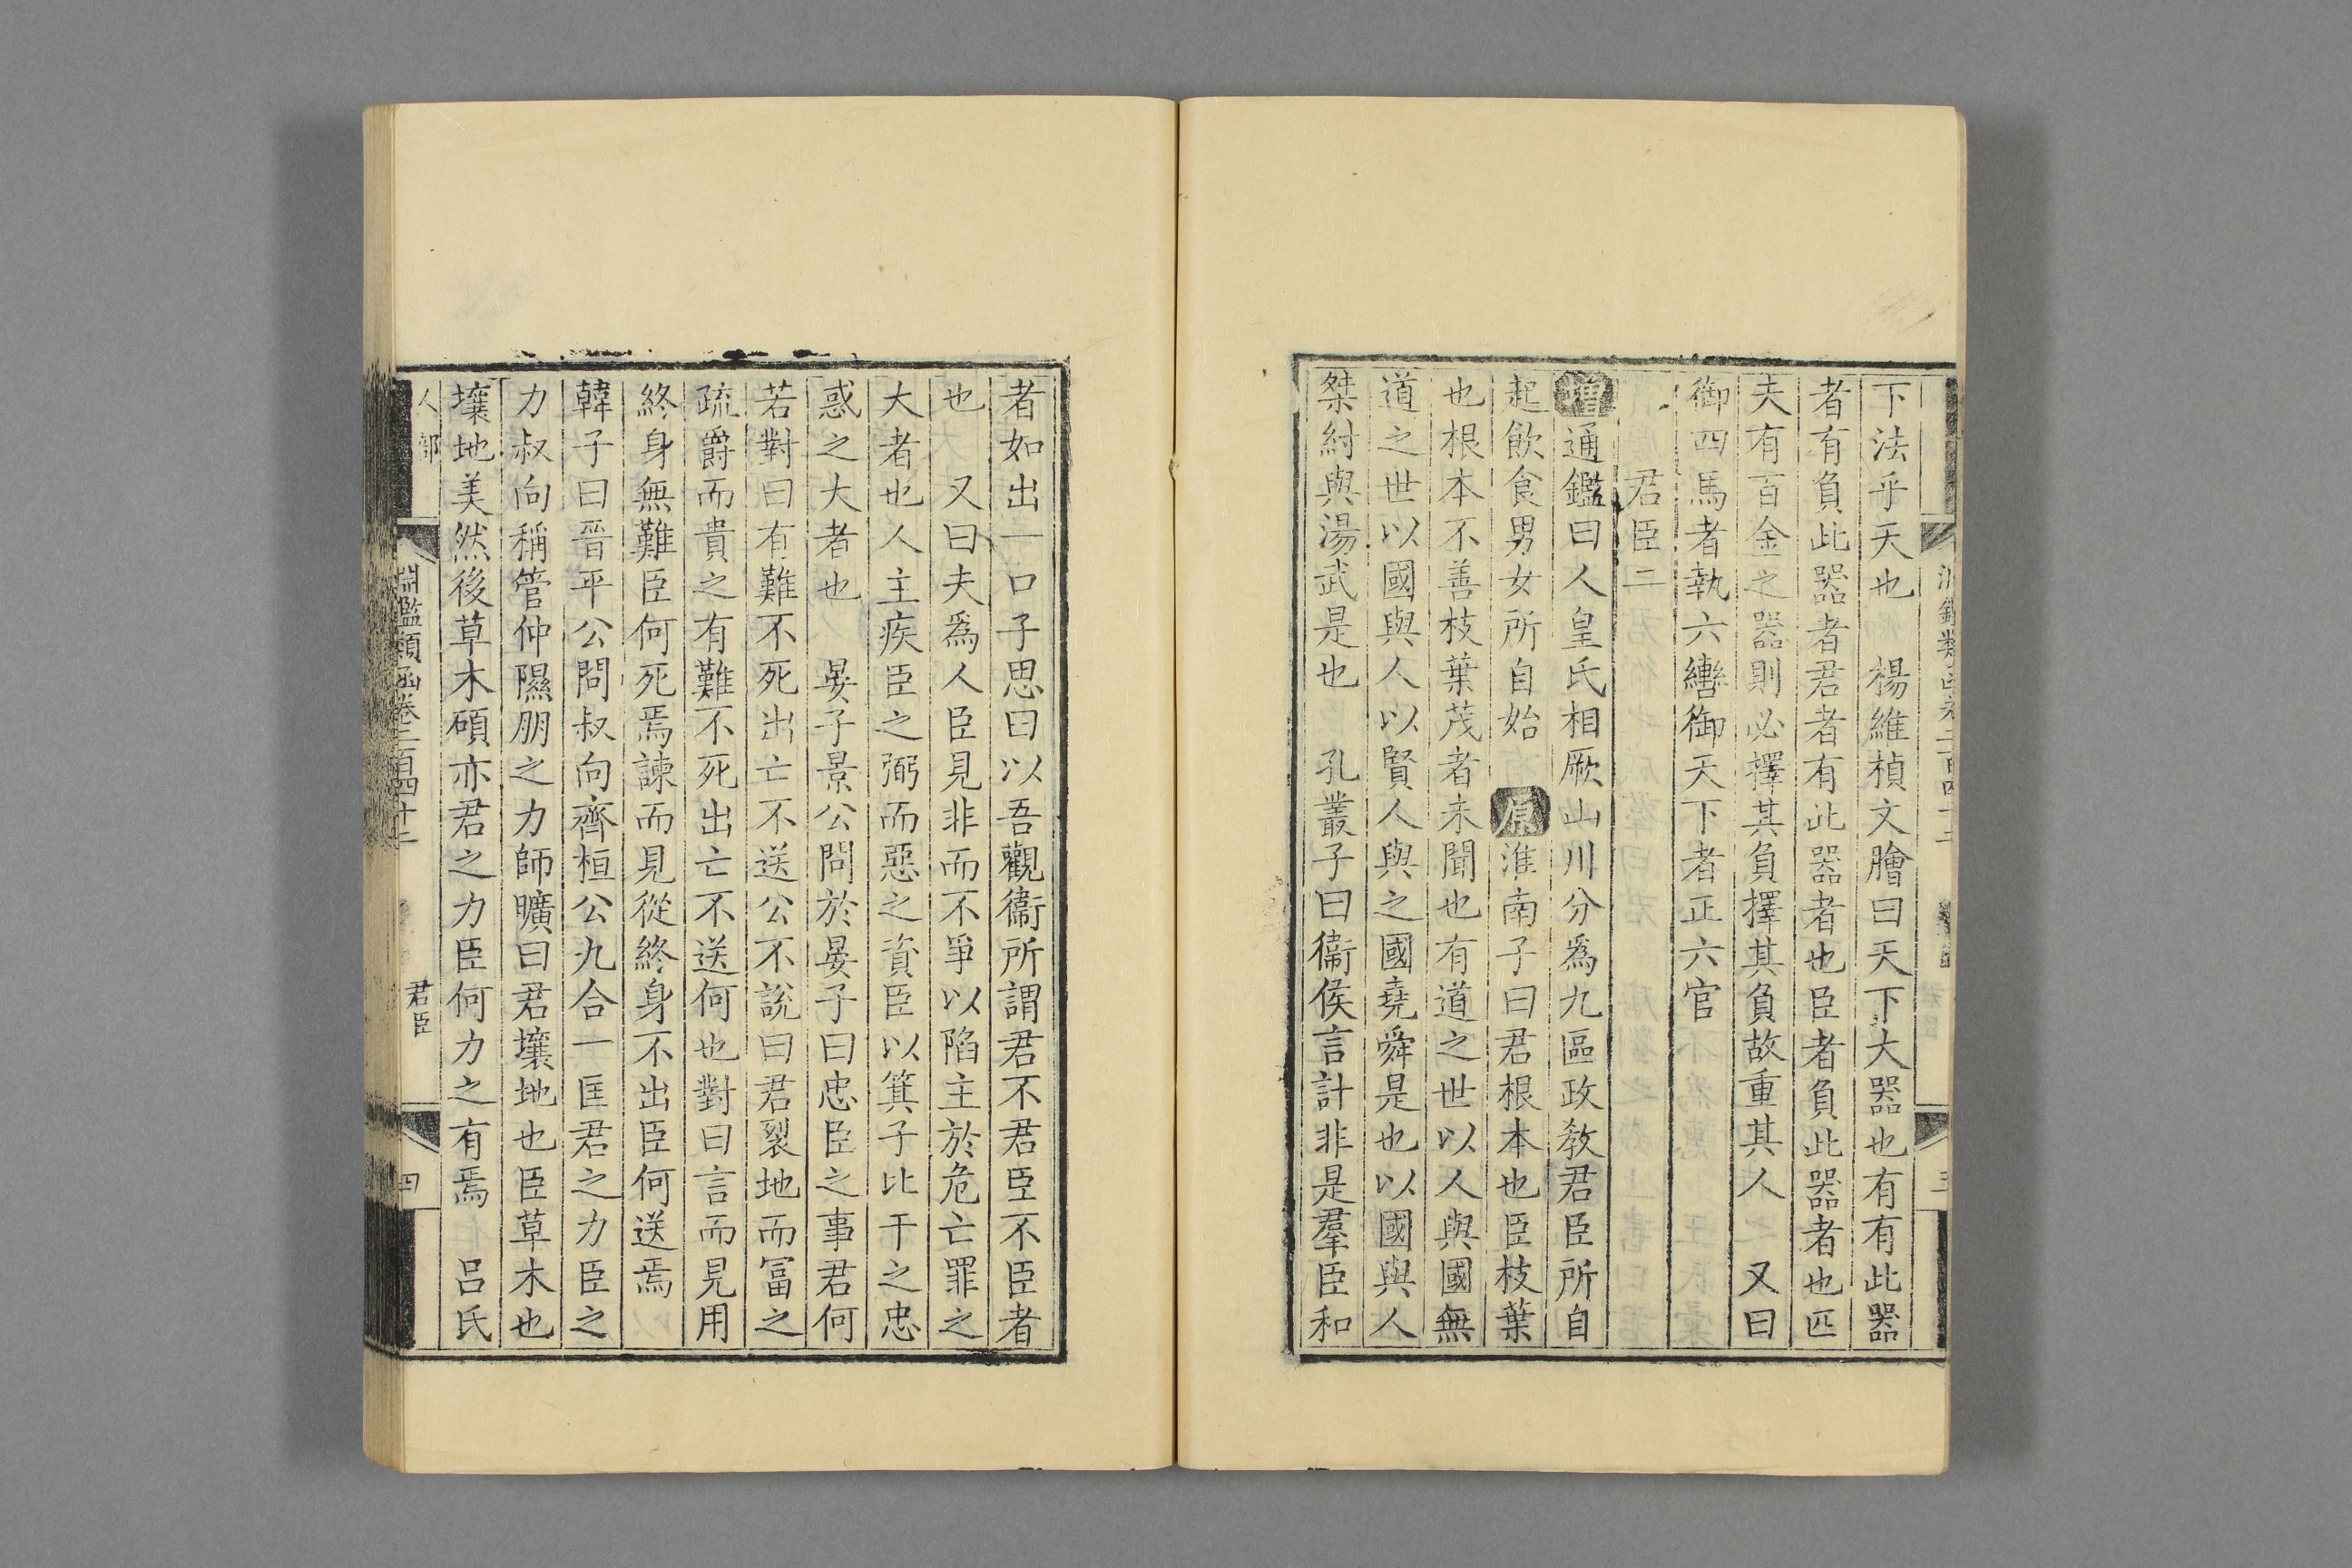 下法乎天也　楊維楨文膾曰天下大器也有有此器
者有負此器者君者有此器者也臣者負此器者也匹
夫有百金之器則必擇其負擇其負故重其人　又曰
御四馬者執六轡御天下者正六官
君臣二
增通鑑曰人皇氏相厥山川分爲九區政教君臣所自
起飮食男女所自始　原淮南子曰君根本也臣枝葉
也根本不善枝葉茂者未聞也有道之世以人與國無
道之世以國與人以賢人與之國堯舜是也以國與人
桀紂與湯武是也　孔叢子曰衞侯言計非是羣臣和
者如出一口子思曰以吾觀衞所謂君不君臣不臣者
也　又曰夫爲人臣見非而不爭以陷主於危亡罪之
大者也人主疾臣之弼而惡之資臣以箕子比干之忠
惑之大者也　晏子景公問於晏子曰忠臣之事君何
若對曰有難不死出亡不送公不說曰君裂地而富之
疏爵而貴之有難不死出亡不送何也對曰言而見用
終身無難臣何死焉諫而見從終身不出臣何送焉
韓子曰晉平公問叔向齊桓公九合一匡君之力臣之
力叔向稱管仲隰朋之力師曠曰君壤地也臣草木也
壤地美然後草木碩亦君之力臣何力之有焉　呂氏
人部
淵鑑類函卷二百四十二
君臣
四